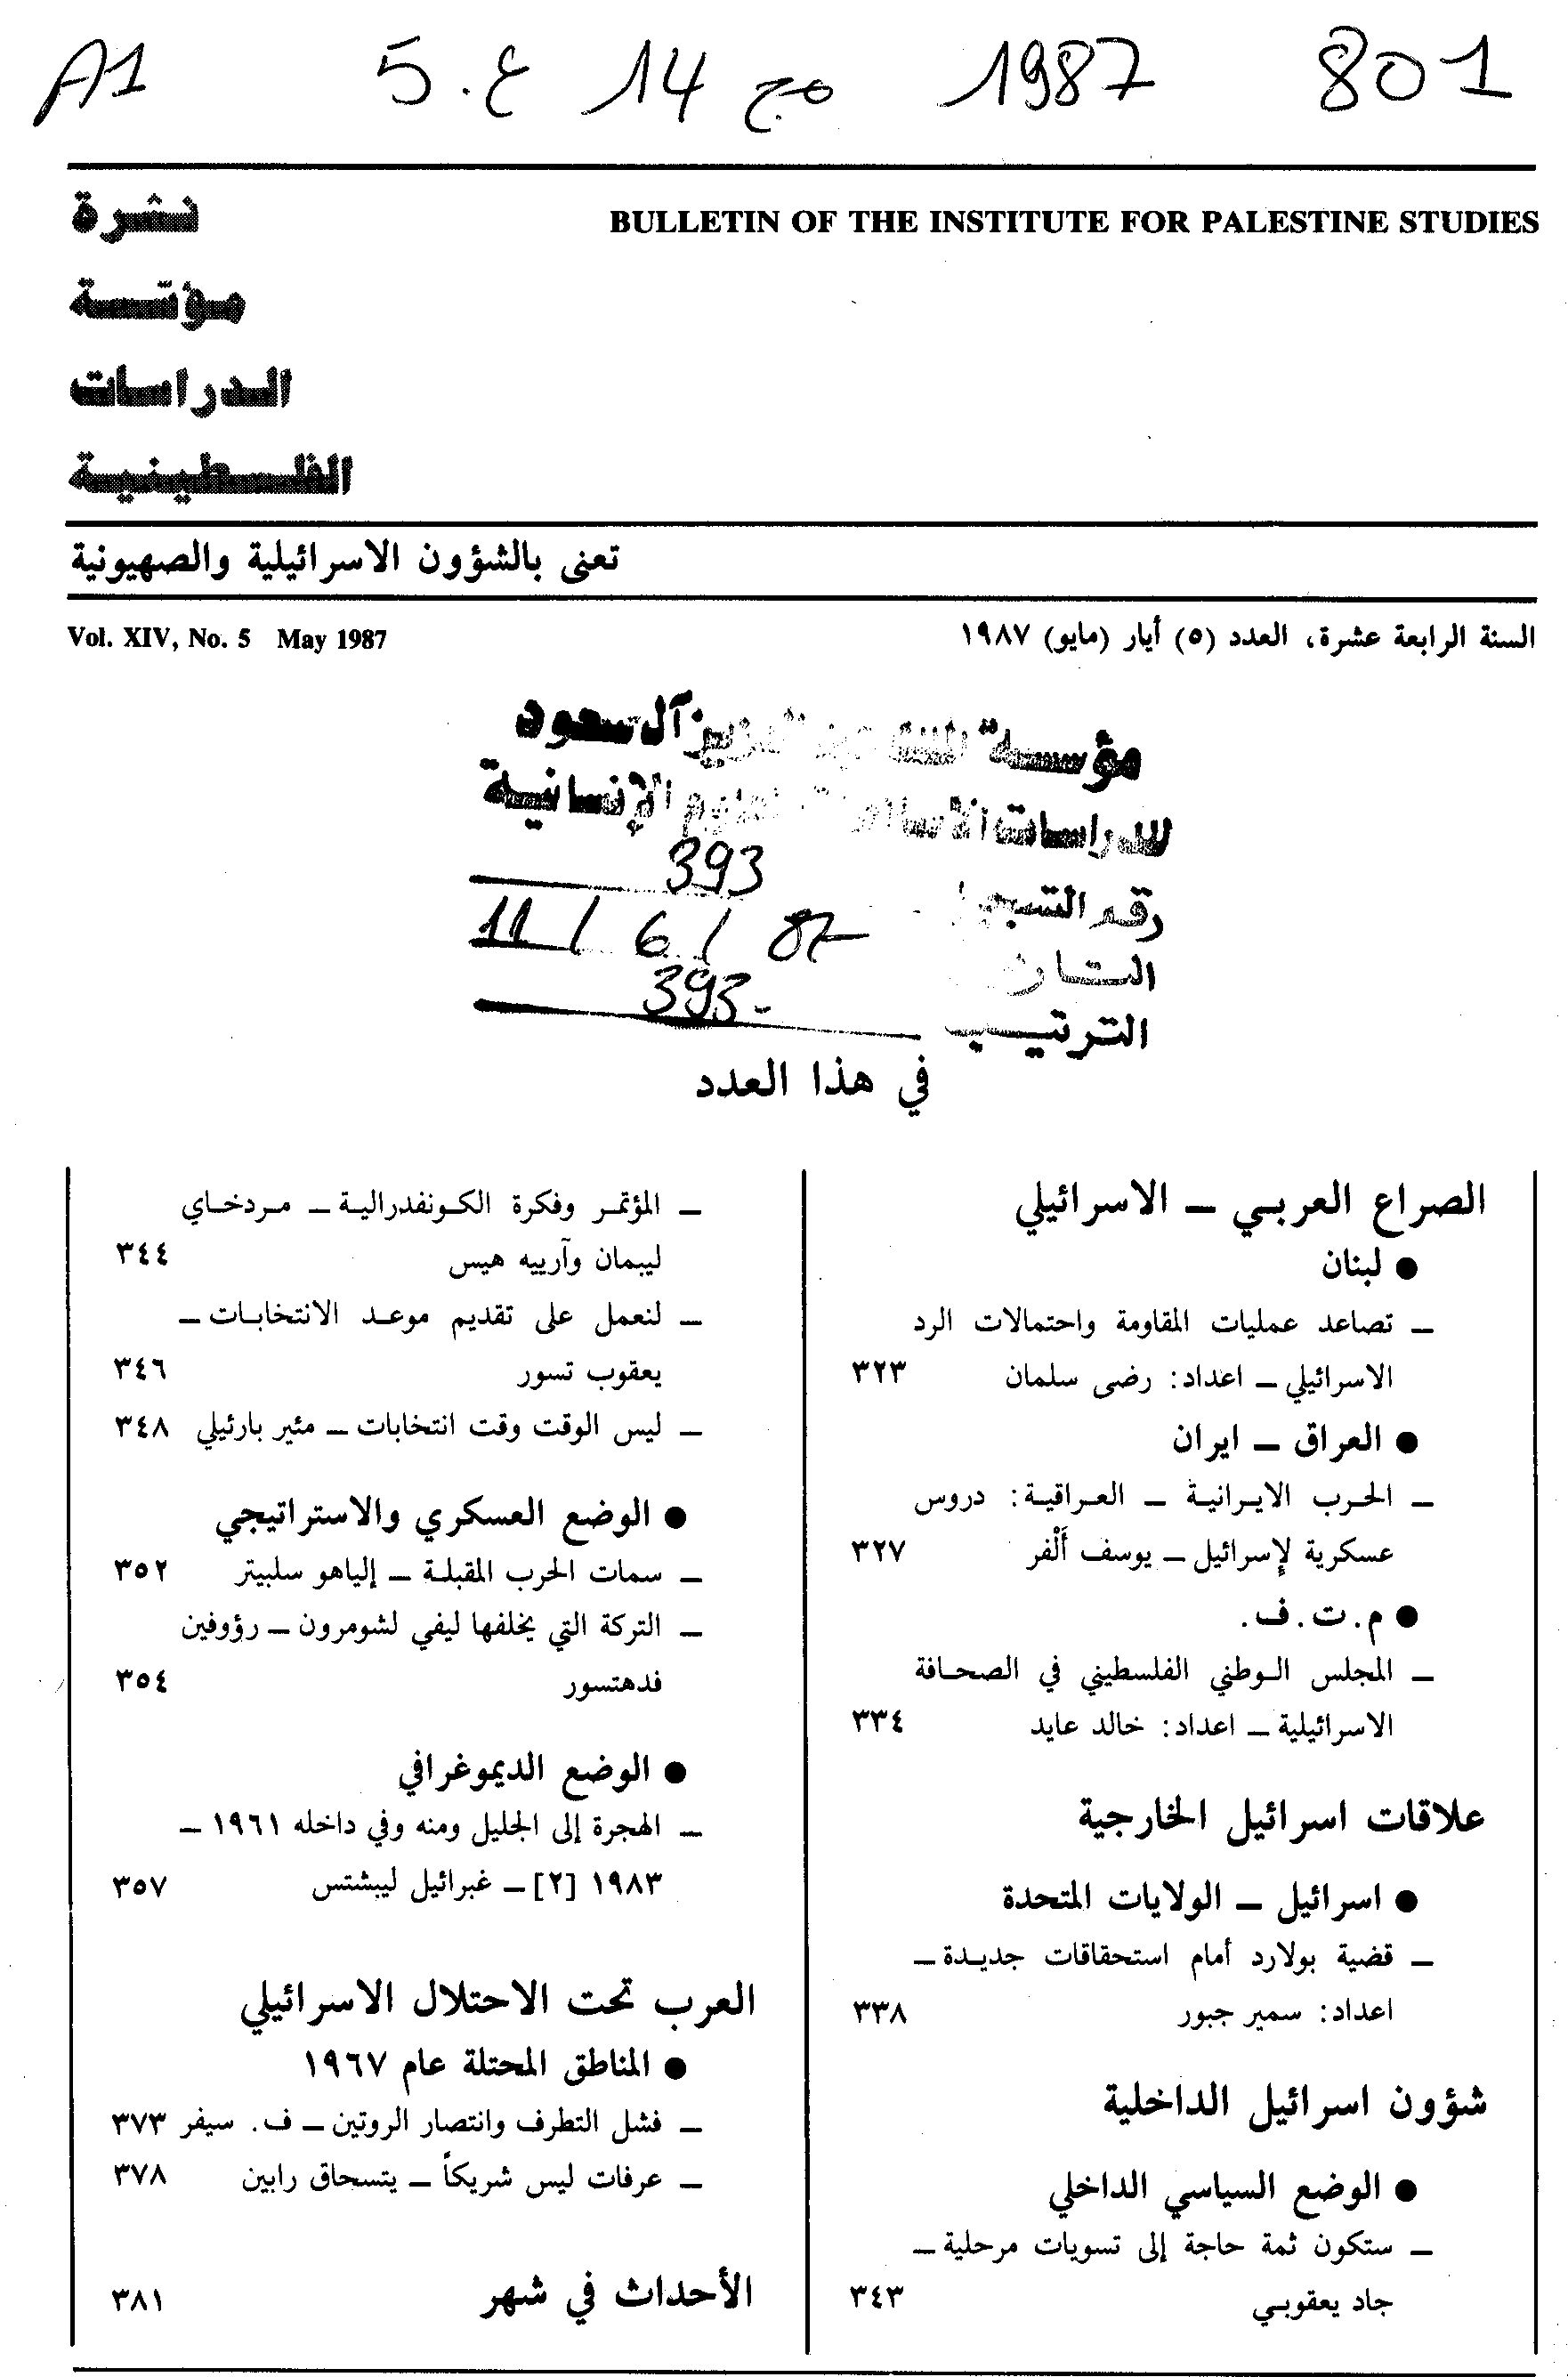 A1 5 .ع 14 مج 1987 801
BULLETIN OF THE INSTITUTE FOR PALESTINE STUDIES
نشرة
مؤسسة
الدراسات
الفلسطينية
تعنى بالشؤون الاسرائيلية والصهيونية
السنة الرابعة عشرة، العدد (٥) أيار (مايو) ١٩٨٧
Vol. XIV, No. 5 May 1987
مؤسسة الملك عبد العزيز آل سعود
للدراسات الاسلامية والعلوم الإنسانية
رقم التسجيل 393
التاريخ 11 / 6 / 87
الترتيب 393
في هذا العدد
الصراع العربي – الاسرائيلي
● لبنان
– تصاعد عمليات المقاومة واحتمالات الرد
الاسرائيلي – اعداد: رضى سلمان ٣٢٣
● العراق – ايران
– الحرب الايرانية – العراقية: دروس
عسكرية لإسرائيل – يوسف أَلْفر ٣٢٧
● م. ت. ف.
– المجلس الوطني الفلسطيني في الصحافة
الاسرائيلية – اعداد: خالد عايد ٣٣٤
علاقات اسرائيل الخارجية
● اسرائيل – الولايات المتحدة
– قضية بولارد أمام استحقاقات جديدة –
اعداد: سمير جبور ٣٣٨
شؤون اسرائيل الداخلية
● الوضع السياسي الداخلي
– ستكون ثمة حاجة إلى تسويات مرحلية –
جاد يعقوبي ٣٤٣
– المؤتمر وفكرة الكونفدرالية – مردخاي
ليبمان وآرييه هيس ٣٤٤
– لنعمل على تقديم موعد الانتخابات –
يعقوب تسور ٣٤٦
– ليس الوقت وقت انتخابات – مئير بارئيلي ٣٤٨
● الوضع العسكري والاستراتيجي
– سمات الحرب المقبلة – إلياهو سلبيتر ٣٥٢
– التركة التي يخلفها ليفي لشومرون – رؤوفين
فدهتسور ٣٥٤
● الوضع الديموغرافي
– الهجرة إلى الجليل ومنه وفي داخله ١٩٦١ –
١٩٨٣ [٢] – غبرائيل ليبشتس ٣٥٧
العرب تحت الاحتلال الاسرائيلي
● المناطق المحتلة عام ١٩٦٧
– فشل التطرف وانتصار الروتين – ف. سيفر ٣٧٣
– عرفات ليس شريكاً – يتسحاق رابين ٣٧٨
الأحداث في شهر ٣٨١